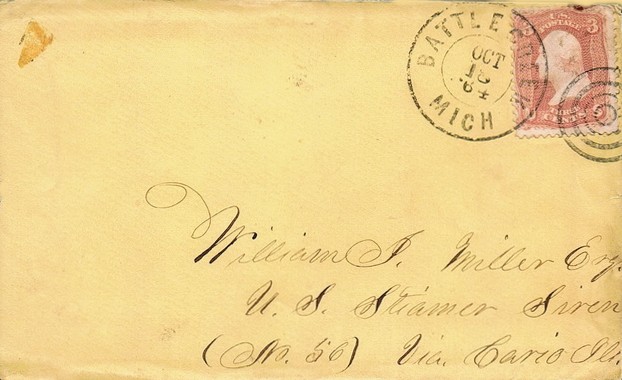 BATTLE CREEK
OCT
12
64
MICH
U.S. POSTAGE
3 3
THREE
CENTS
William I. Miller Esq.
U. S. Steamer Siren
(No. 56) Via. Cario Ills.